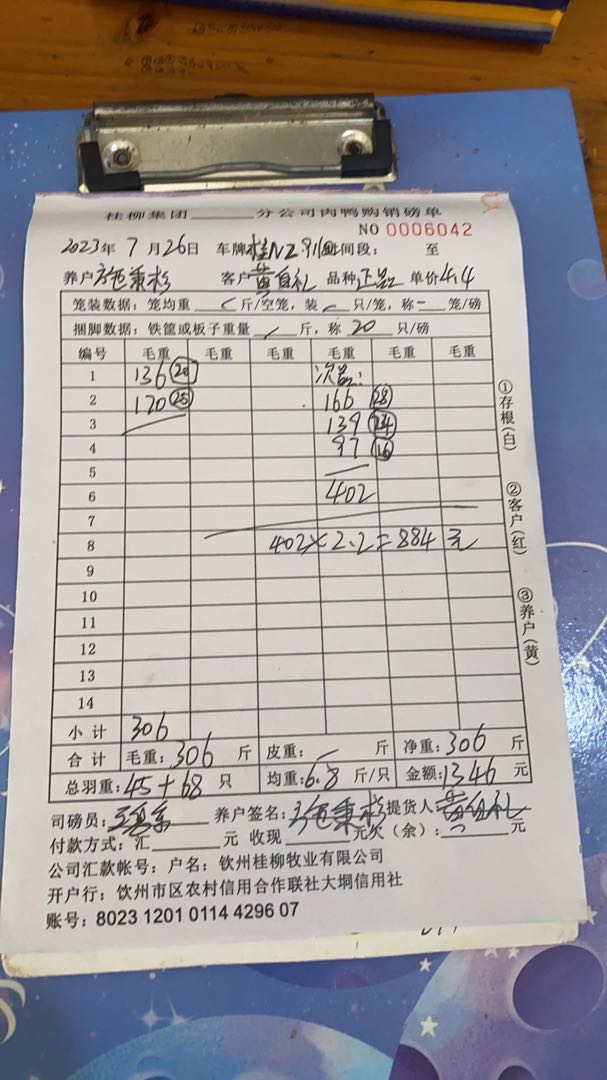 桂柳集团______分公司肉鸭购销磅单
NO 0006042
2023年 7 月 26日 车牌 桂N2 时间段: 至
养户 秉杉 客户 黄自礼 品种 正品 单价 4.4
笼装数据: 笼均重 斤/空笼, 装 只/笼, 称 笼/磅
捆脚数据: 铁筐或板子重量 斤, 称 20 只/磅
编号 毛重 毛重 毛重 毛重 毛重 毛重
1 136 20 次品:
2 170 25 166 28
3 139 24
4 97 16
5
6 402
7
8 402×2.2=884 元
9
10
11
12
13
14
小计 306
合计 毛重: 306 斤 皮重: 斤 净重: 306 斤
总羽重: 45+68 只 均重: 6.8 斤/只 金额: 1346 元
司磅员: 养户签名: 秉杉 提货人 黄自礼
付款方式: 汇______元 收现______元欠(余):______元
公司汇款帐号: 户名: 钦州桂柳牧业有限公司
开户行: 饮州市区农村信用合作联社大垌信用社
账号: 8023 1201 0114 4296 07
①存根(白)
②客户(红)
③养户(黄)